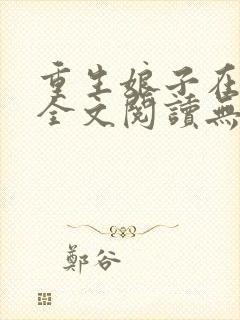 重生娘子在
全文閱讀無
鄭谷